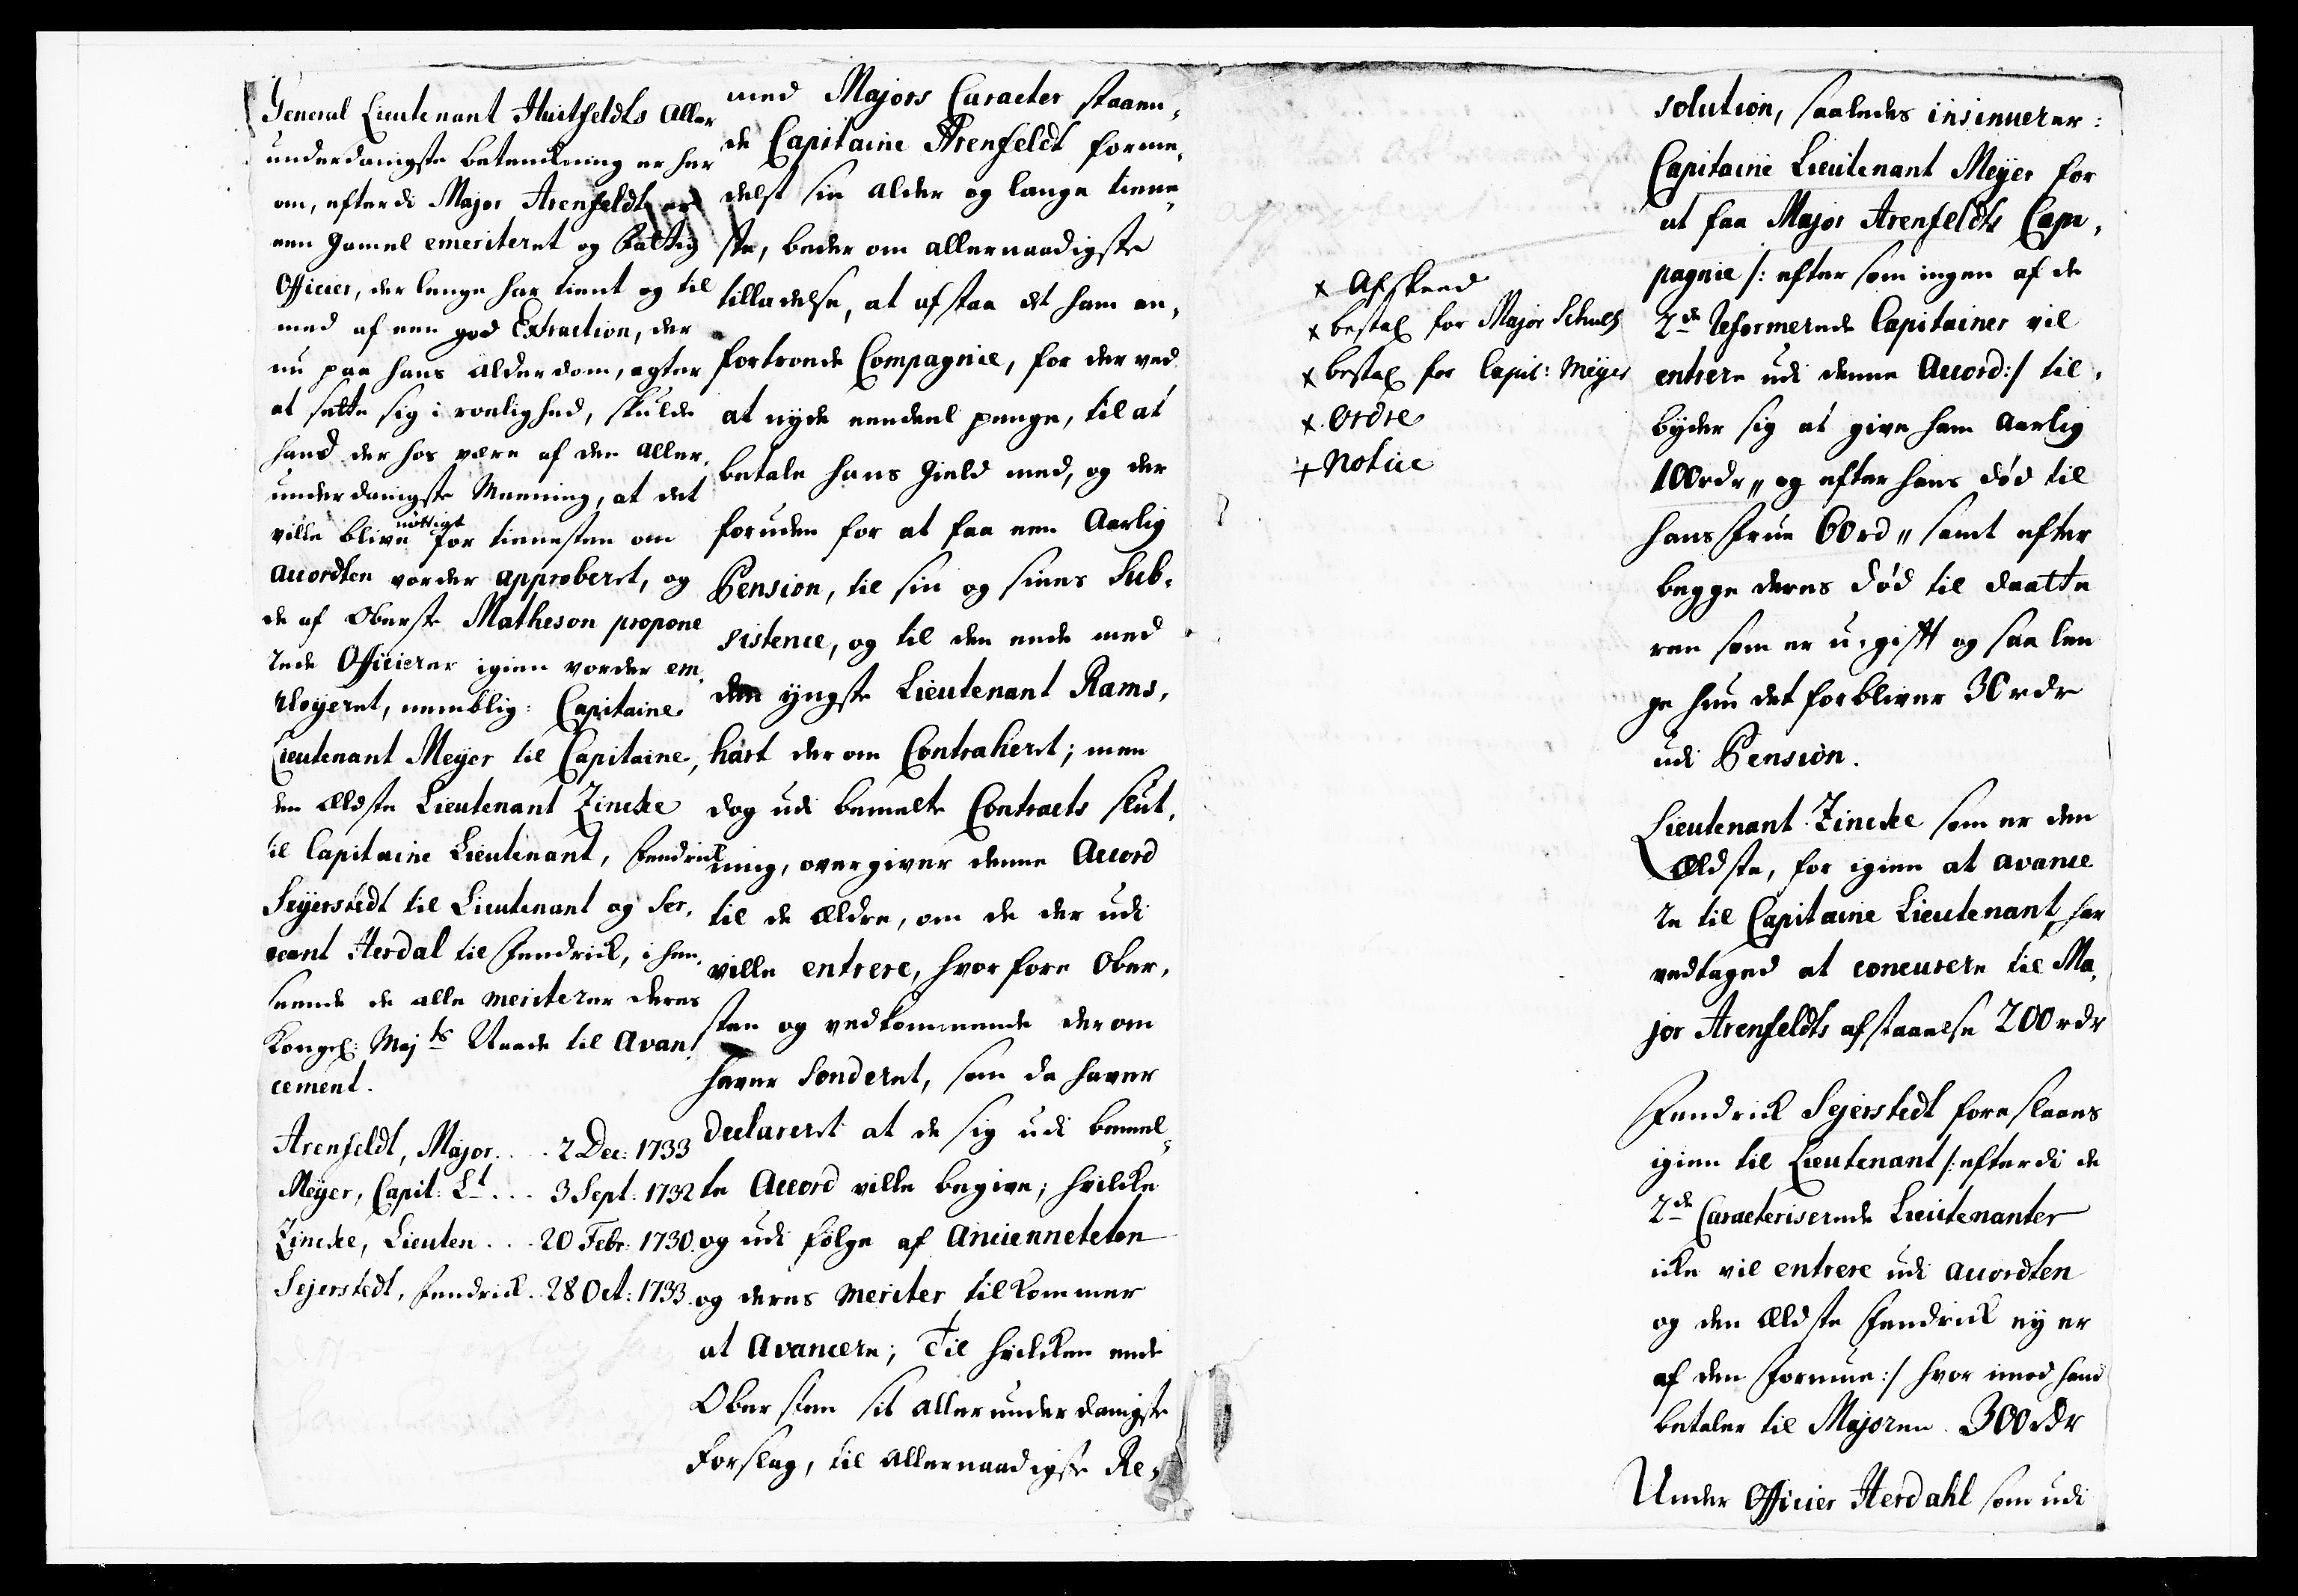 General Lieutenant Huitfeldts Aller
underdanigste betenckning er her
om, efterdi Major Arenfeldt er
een gamel emeriteret og fattig
Officier, der lenge har tient og til
med af een god Extraction, der
nu paa hans Alderdom, agter
at sette sig i roelighed, skulde
hand der hos være af den Aller,
underdanigste Meening, at det
ville blive nöttigt for tienesten om
Accordten vorder approberet, og
de af Oberste Matheson propone
rede Officierer igien vorder em,
ployeret, nemblig: Capitaine
Lieutenant Meyer til Capitaine,
den ældste Lieutenant Zincke
til Capitaine Lieutenant, Fendrick
Seyerstedt til Lieutenant og Ser,
geant Herdal til Fendrick, i hen,
seende de alle meriterer deres
Kongel: Maj ts Naade til Avan,
cement.
Arenfeldt, Major . . . 2 Dec: 1733
Meyer, Capit: Lt . . . 3 Sept: 1732
Zincke, Lieuten . . . 20 Febr: 1730.
Sejerstedt, Fendrick. 28 Oct: 1733.
med Majors Caracter staaen,
de Capitaine Arenfeldt forme,
delst sin Alder og lange tiene,
ste, beder om allernaadigste
tilladelse, at afstaa det ham an,
fortroede Compagnie, for derved
at nyde eendeel penge, til at
betale hans gield med, og der
foruden for at faa een Aarlig
Pension, til sin og sines Sub,
sistence, og til den ende med
den yngste Lieutenant Rams,
hart derom Contraheret; men
dog udi bemelte Contracts slut,
ning, overgiver denne Accord
til de ældre, om de der udi
ville entrere, hvorfore Ober,
sten og vedkommende derom
haver Sonderet, som da haver
declareret at de sig udi bemel,
te Accord ville begive; hvilcke
og udi følge af Ancienneteten
og deres meriter tilkommer
at Avancere; Til hvilcken ende
Obersten sit allerunderdanigste
Forslag, til allernaadigste Re,
x Afskeed
x bestal for Major Schultz
x bestal for Capit: Meyer
x. Ordre
+ Notice
solution, saaledes insinuerer:
Capitaine Lieutenant Meyer for
at faa Major Arenfeldts Com,
pagnie /: eftersom ingen af de
2de Reformerede Capitainer vil
entrere udi denne Accord :/ til,
byder sig at give ham Aarlig
100 rdr,, og efter hans død til
hans Frue 60 rd,, samt efter
begge deres død til daatte
ren som er u-gift og saa len
ge hun det forbliver 30 rdr
udi Pension.
Lieutenant Zincke som er den
Ældste, for igien at avance
re til Capitaine Lieutenant har
vedtaged at concurere til Ma,
jor Arenfeldts afstaaelse 200 rdr
Fendrick Sejerstedt foreslaaes
igien til Lieutenant /: efterdi de
2de Caracteriserede Lieutenanter
icke vil entrere udi accordten
og den ældste Fendrick ey er
af den Formue :/ hvorimod hand
betaler til Majoren 300 rdr
Under Officier Herdahl som udi